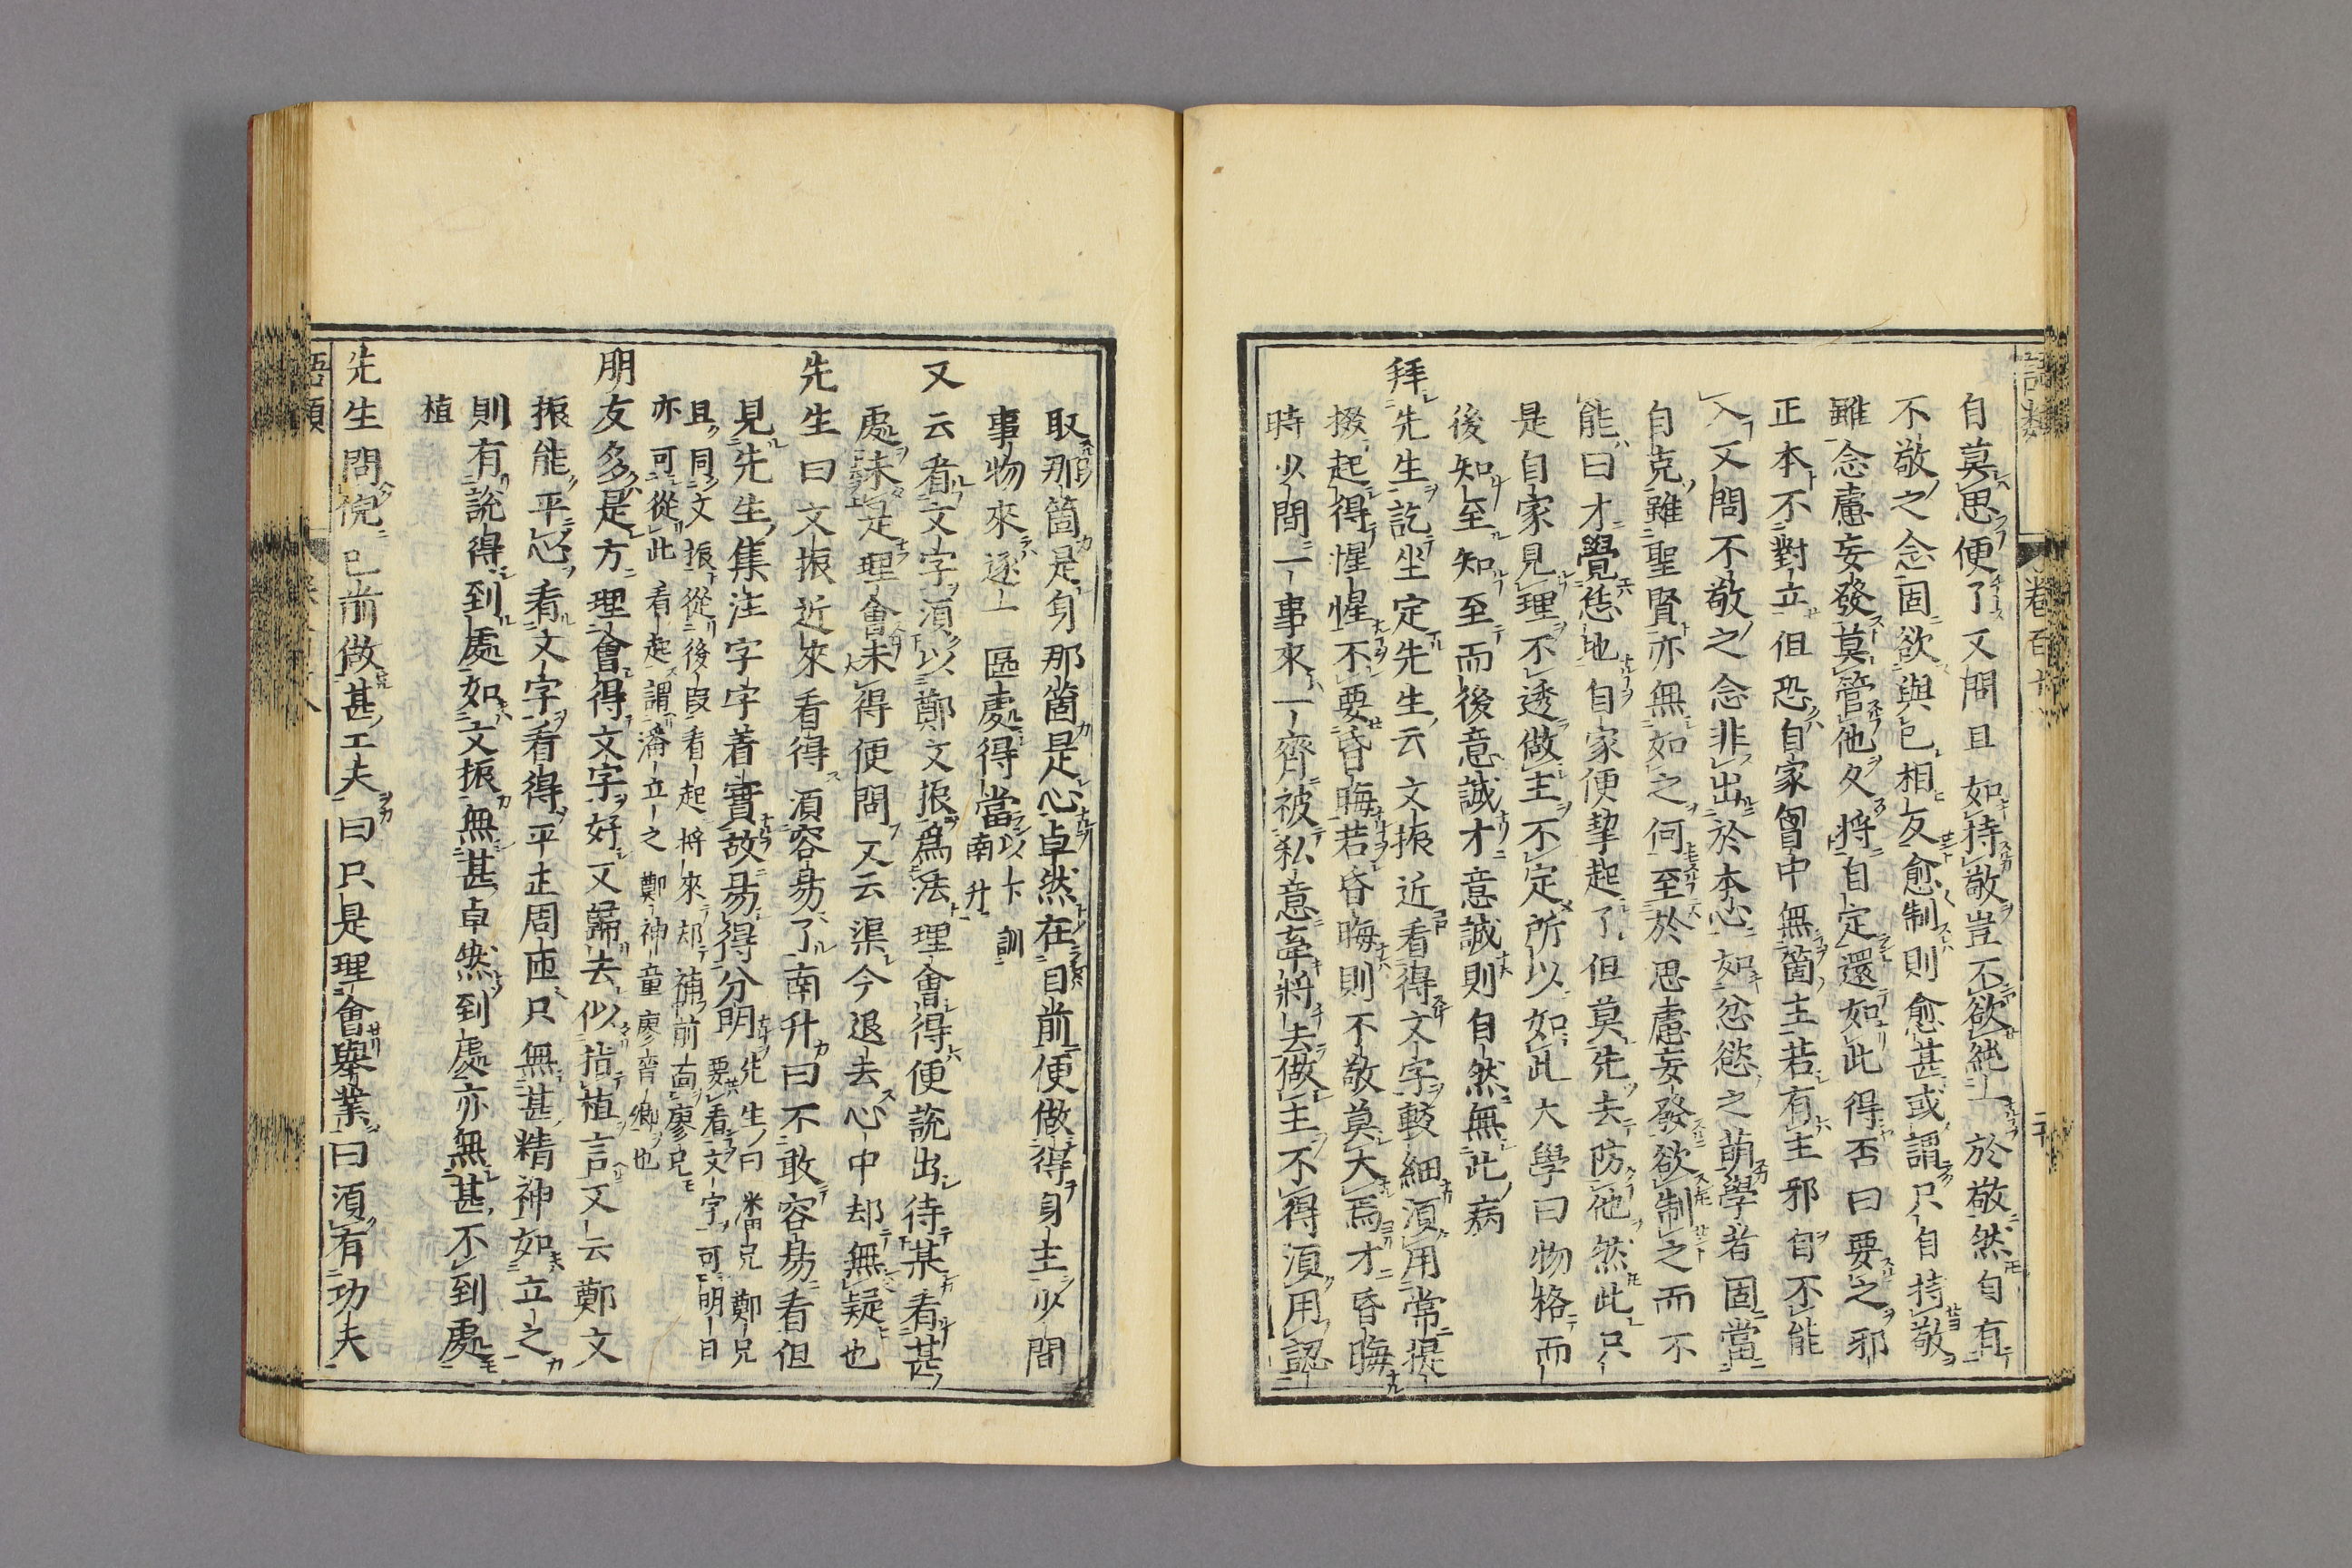 自莫思便了又問且如持敬豈不欲純一於敬然自有
不敬之念固欲與己相反愈制則愈甚或謂只自持敬
雖念慮妄發莫管他久將自定還如此得否曰要之邪
正本不對立但恐自家胷中無箇主若有主邪自不能
入又問不敬之念非出於本心如忿慾之萌學者固當
自克雖聖賢亦無如之何至於思慮妄發欲制之而不
能曰才覺恁地自家便挈起了但莫先去防他然此只
是自家見理不透做主不定所以如此大學曰物格而
後知至知至而後意誠才意誠則自然無此病
拜先生訖坐定先生云文振近看得文字較細須用常提
掇起得惺惺不要昏晦若昏晦則不敬莫大焉才昏晦
時少間一事來一齊被私意牽將去做主不得須用認
取那箇是身那箇是心卓然在目前便做得身主少間
事物來逐一區處得當 以下訓南升
又云看文字須以鄭文振爲法理會得便說出待某看甚
處未是理會未得便問又云渠今退去心中却無疑也
先生曰文振近來看得須容易了南升曰不敢容易看但
見先生集注字字著實故易得分明 先生曰潘兄鄭兄
要看文字可明日
且同文振從後叚看起將來却補前面廖兄
亦可從此看起謂潘立之鄭神童廖齊卿也
朋友多是方理會得文字好又歸去似指植言又云鄭文
振能平心看文字看得平正周匝只無甚精神如立之
則有說得到處如文振無甚卓然到處亦無甚不到處
植
先生問倪已前做甚工夫曰只是理會舉業曰須有功夫